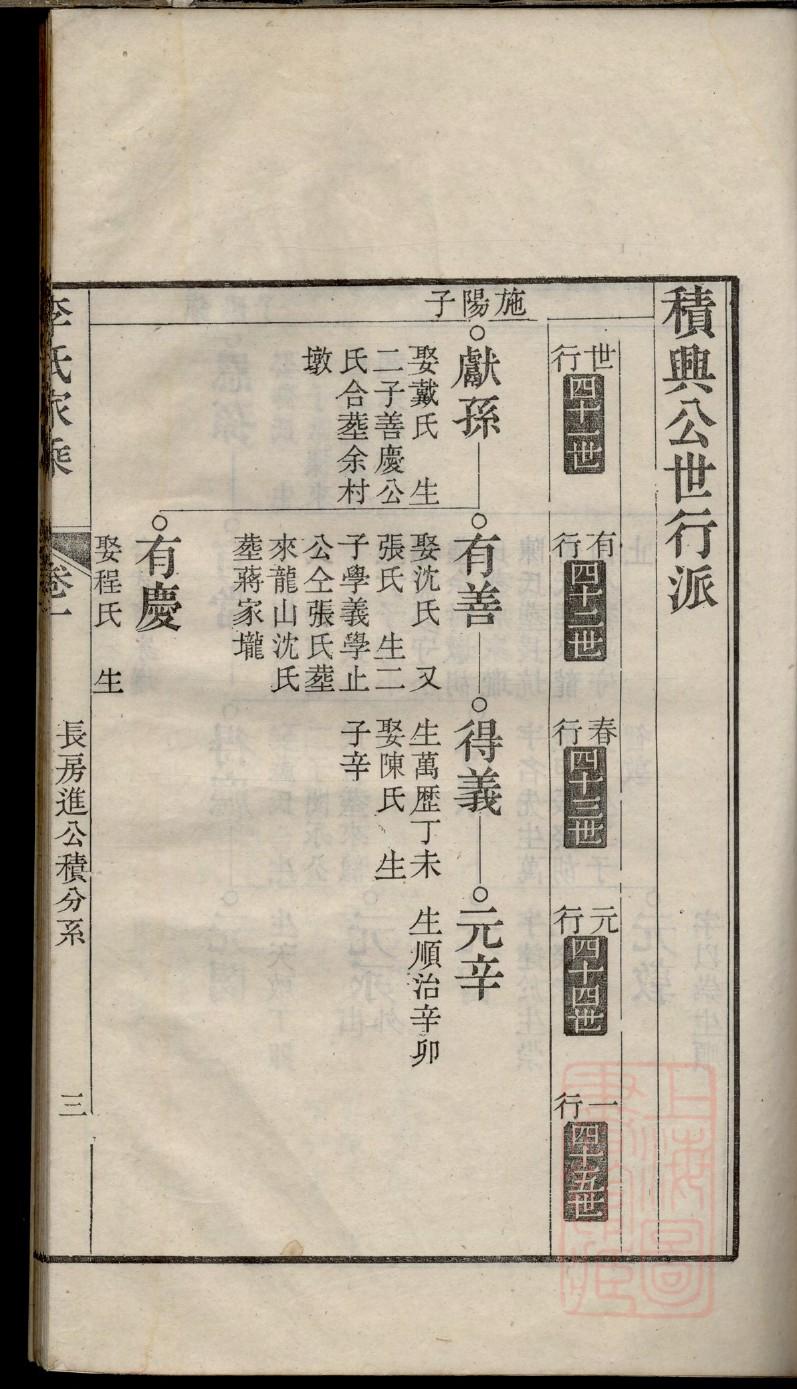 積興公世行派
世行
四十一世
有行
四十二世
春行
四十三世
元行
四十四世
一行
四十五世
施陽子
獻孫
娶戴氏 生
二子善慶公
氏合塟余村
墩
有善
娶沈氏 又
張氏 生二
子學義學止
公仝張氏塟
來龍山沈氏
塟蔣家壠
得義
生萬歷丁未
娶陳氏 生
子辛
元辛
生順治辛卯
有慶
娶程氏 生
李氏家乘
卷一
長房進公積分系
三
上海圖書館藏